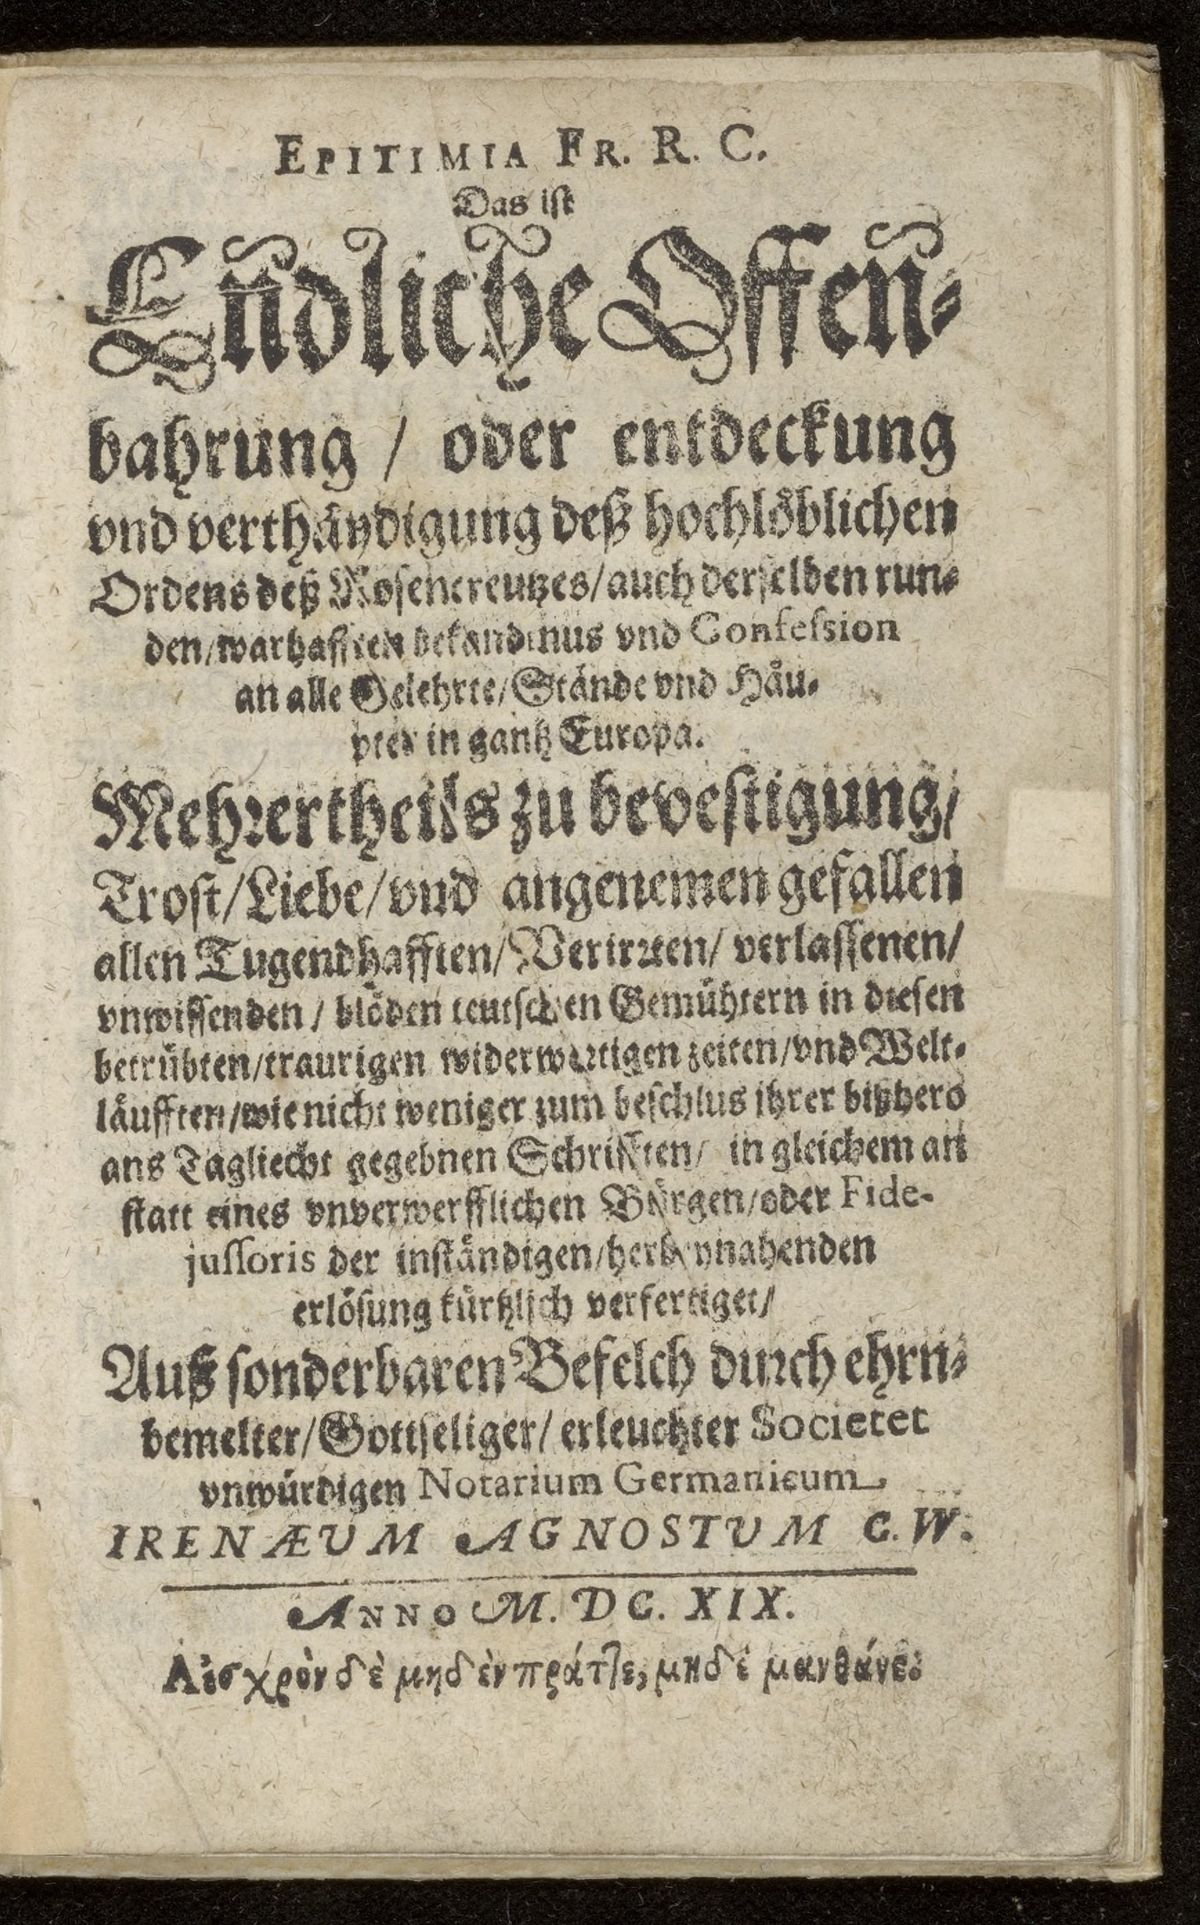 EPITIMIA FR. R. C.
Das ist
Endliche Offen-
bahrung / oder entdeckung
vnd verthäydigung deß hochlöblichen
Ordens deß Rosencreutzes/auch derselben run-
den/warhafften bekandtnus vnd Confession
an alle Gelehrte/Stände vnd Häu-
pter in gantz Europa.
Mehrertheils zu bevestigung/
Trost/Liebe/vnd angenemen gefallen
allen Tugendhafften/Verirrten/ verlassenen/
vnwissenden / blöden teutschen Gemühtern in diesen
betrübten/traurigen widerwertigen zeiten/vnd Welt-
läufften/wie nicht weniger zum beschlus ihrer bißhero
ans Tagliecht gegebnen Schrifften/ in gleichem an
statt eines vnverwerfflichen Bürgen/oder Fide-
jussoris der inständigen/herbeynahenden
erlösung kürtzlich verfertiget/
Auß sonderbaren Befelch durch ehrn-
bemelter/Gottseliger/ erleuchter Societet
vnwürdigen Notarium Germanicum
IRENÆUM AGNOSTUM C. W.
ANNO M. DC. XIX.
Αἰσχρὸν δὲ μηδὲν πράττε, μηδὲ μανθάνε: